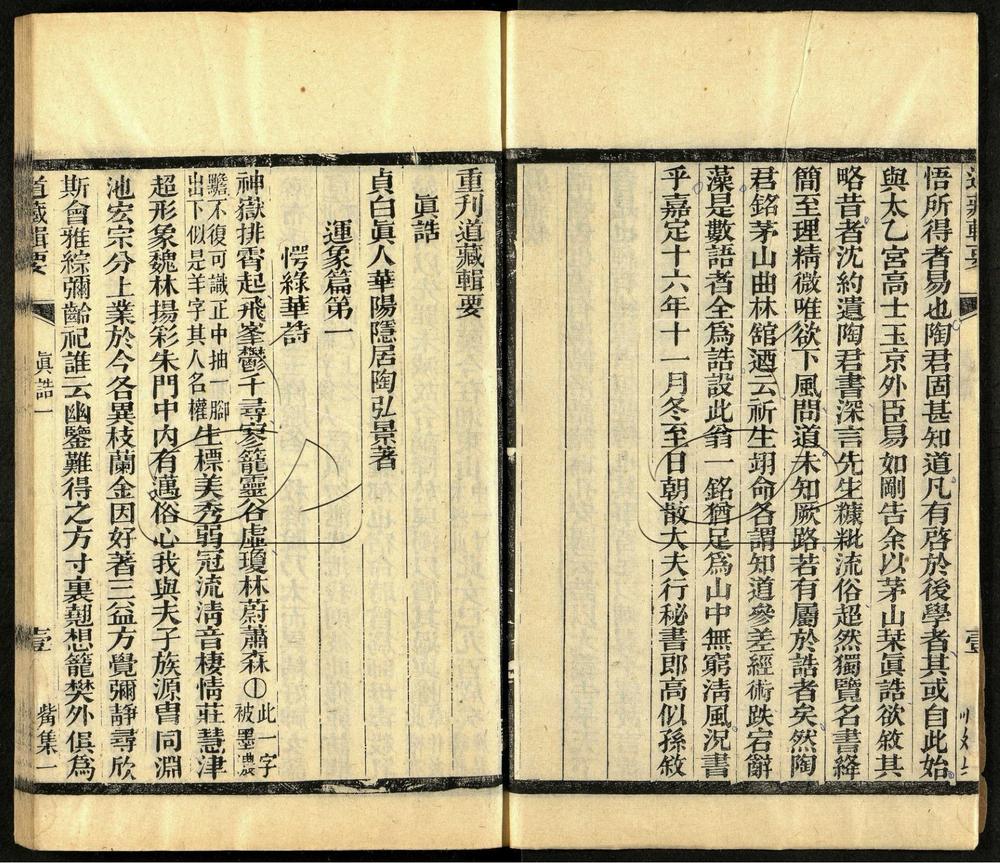 悟所得者易也陶君固甚知道凡有啓於後學者其或自此始
與太乙宮高士玉京外臣易如剛告余以茅山栞眞誥欲敘其
略昔者沈約遺陶君書深言先生糠粃流俗超然獨覽名書絳
簡至理精微唯欲下風問道未知厥路若有屬於誥者矣然陶
君銘茅山曲林舘迺云祈生翊命各謂知道參差經術跌宕辭
藻是數語者全爲誥設此翁一銘猶足爲山中無窮淸風況書
乎嘉定十六年十一月冬至日朝散大夫行秘書郎高似孫敘
重刊道藏輯要
眞誥
貞白眞人華陽隱居陶弘景著
運象篇第一
愕綠華詩
神嶽排霄起飛峯鬱千尋寥籠靈谷虛瓊林蔚蕭森①此一字被墨濃
黵不復可識正中抽一腳出下似是羊字其人名權生標美秀弱冠流淸音棲情莊慧津
超形象魏林揚彩朱門中內有邁俗心我與夫子族源冑同淵
池宏宗分上業於今各異枝蘭金因好著三益方覺彌靜尋欣
斯會雅綜彌齡祀誰云幽鑒難得之方寸裏翹想籠樊外俱爲
道藏輯要
眞誥一
壹
觜集一